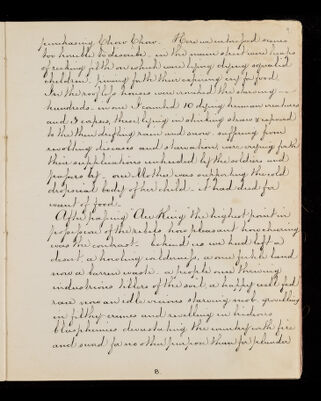 purchasing Chow Chow. Here we witnessed scenes
too horrible to describe, in the main street were heaps
of reeking filth on which were lying dying squalid
children, piercing forth their expiring cry for food.
In the roofless houses were crowded the starving —
hundreds. in one I counted 10 dying human creatures
and 3 corpses, these lying in stinking straw & exposed
to the then drifting rain and snow. suffering from
revolting diseases and starvation, were crying forth
their supplications unheeded by the soldiers and
passers by. one Mother was supporting the cold
dropsical body of her child. it had died for
want of food.
After passing the highest point in
possession of the rebels, how pleasant how cheering
was the contrast. behind us we had left a
desert, a howling wilderness, a once fertile land
now a barren waste. a people once thriving
industrious tillers of the soil, a happy well fed
race now an idle vicious starving mob grovelling
in filthy crimes and revelling in hideous
blasphemies devastating the country with fire
and sword for no other purpose than for plunder
8.